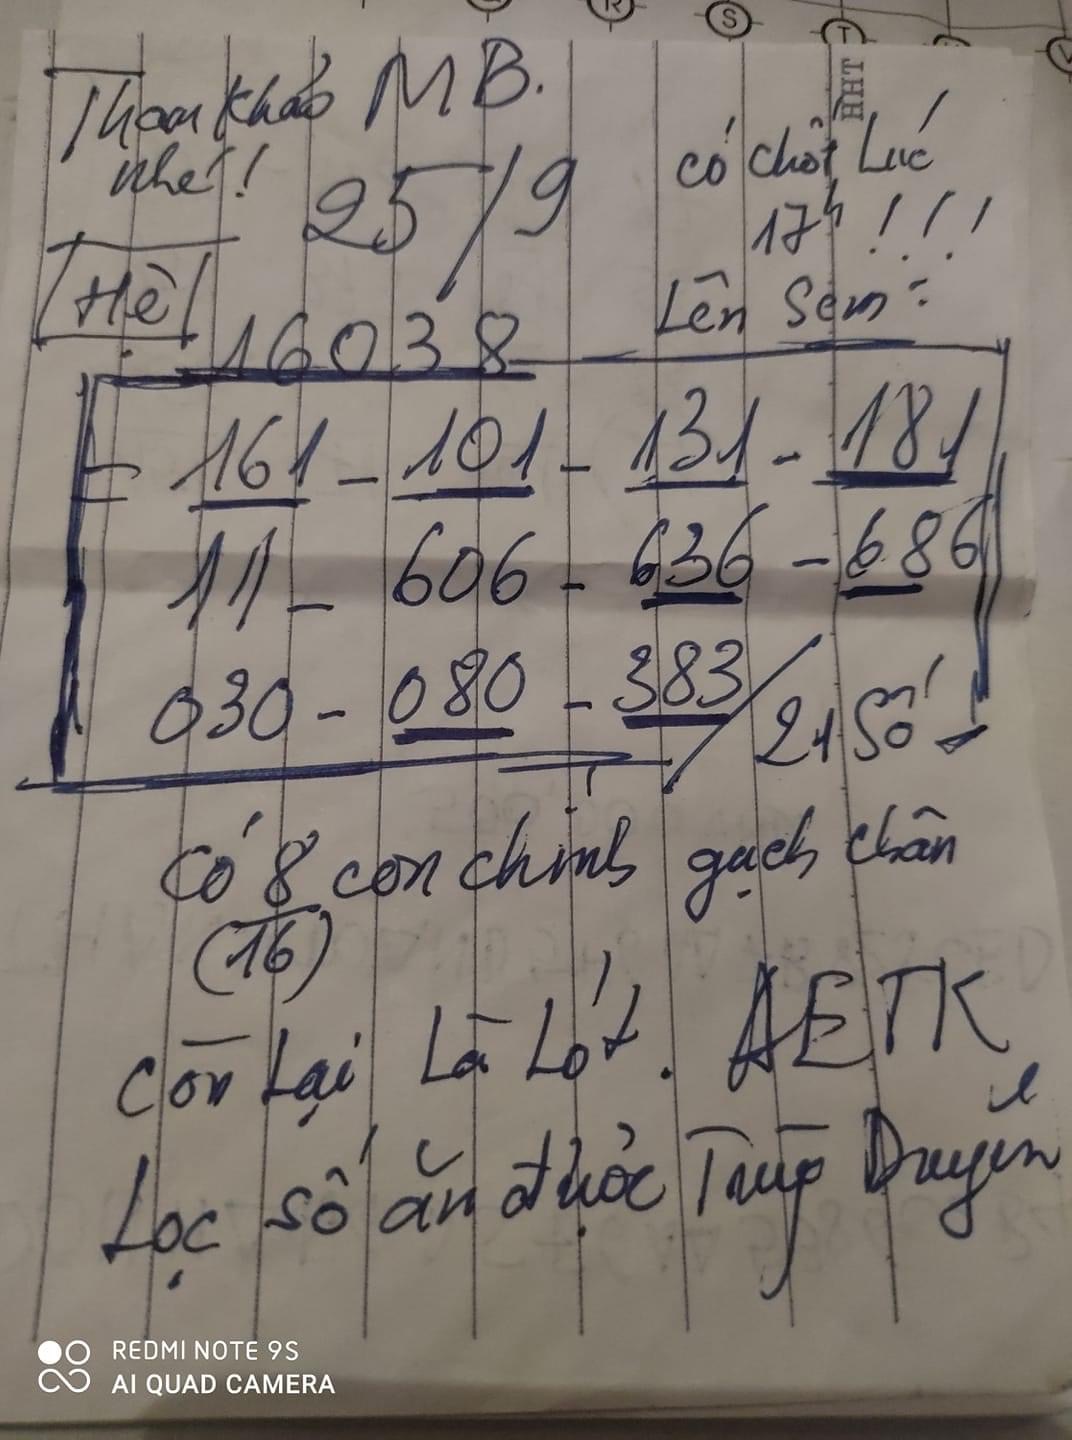 R S T V
HHT
Tham khảo MB.
nhé!
25/9
có chốt Lúc
17h!!!
Hệ
Lên Sớm:
16038
161 - 101 - 131 - 181
11 - 606 - 636 - 686
030 - 080 - 383 / 21 Số
Có 8 con chính gạch chân
(16)
còn Lại Là Lót. AETK
Lọc số ăn được Truy
REDMI NOTE 9S
AI QUAD CAMERA